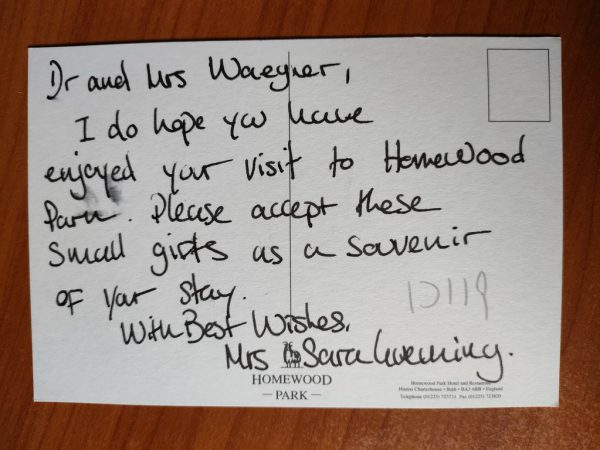 Dr and Mrs Waegner,
I do hope you have
enjoyed your visit to Homewood
Park. Please accept these
small gifts as a savenir
of your stay.
With Best Wishes.
Mrs Sara
HOMEWOOD
— PARK —
Homewood Park Hotel and Restaurant
Hinton Charterhouse • Bath • BA3 6BB • England
Telephone (01225) 723731 Fax (01225) 723820